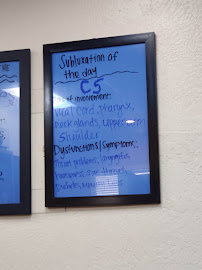 Subluxation of
the day
C5
of involvement:
Vocal Cord, Pharynx,
neck glands, Upper Arm
Shoulder
Dysfunctions/Symptoms:
Throat problems, laryngitis,
hoarseness, sore throat,